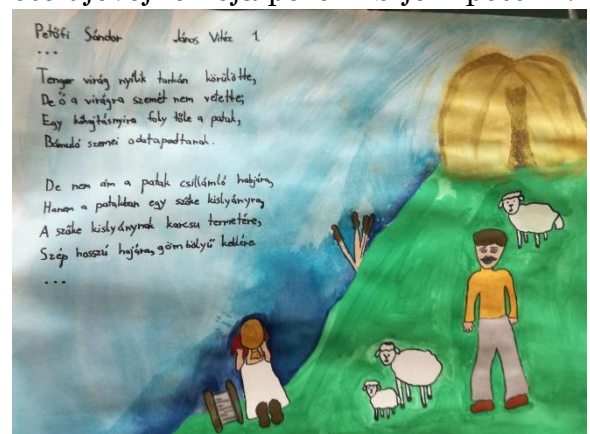 Petőfi Sándor János Vitéz 1.
...
Tenger virág nyílik tarkán körülötte,
De ő a virágra szemét nem vetette;
Egy kőhajtásnyira foly tőle a patak,
Bámuló szemei odatapadtanak.
De nem ám a patak csillámló habjára,
Hanem a patakban egy szőke kislyányra,
A szőke kislyánynak karcsu termetére,
Szép hosszú hajára, gömbölyű keblére
...